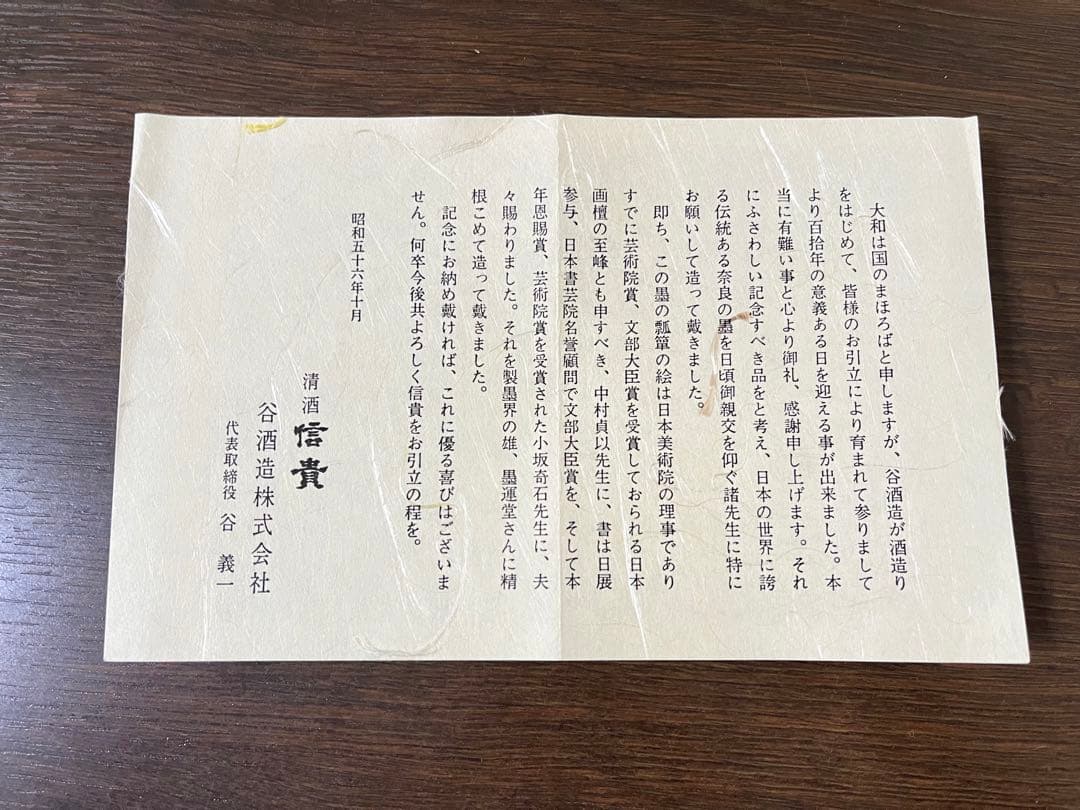 大和は国のまほろばと申しますが、谷酒造が酒造り
をはじめて、皆様のお引立により育まれて参りまして
より百拾年の意義ある日を迎える事が出来ました。本
当に有難い事と心より御礼、感謝申し上げます。それ
にふさわしい記念すべき品をと考え、日本の世界に誇
る伝統ある奈良の墨を日頃御親交を仰ぐ諸先生に特に
お願いして造って戴きました。
即ち、この墨の瓢箪の絵は日本美術院の理事であり
すでに芸術院賞、文部大臣賞を受賞しておられる日本
画檀の至峰とも申すべき、中村貞以先生に、書は日展
参与、日本書芸院名誉顧問で文部大臣賞を、そして本
年恩賜賞、芸術院賞を受賞された小坂奇石先生に、夫
々賜わりました。それを製墨界の雄、墨運堂さんに精
根こめて造って戴きました。
記念にお納め戴ければ、これに優る喜びはございま
せん。何卒今後共よろしく信貴をお引立の程を。
昭和五十六年十月
清酒 信貴
谷酒造株式会社
代表取締役 谷 義一